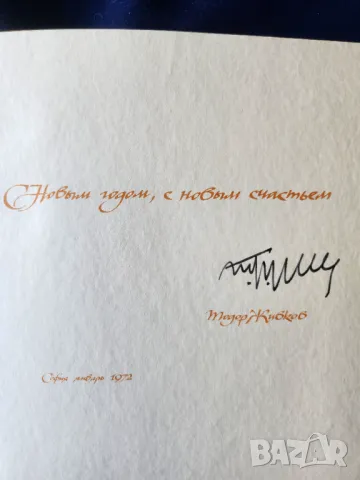 С Новым годом, с новым счастьем
Тодор Живков
София январь 1972
BAZAR
bg